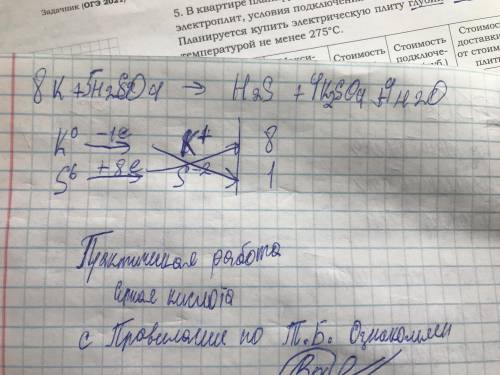 Задачник (ОГЭ 2021)
5. В квартире планир
электроплит, условия подключени
Планируется купить электрическую плиту глуби
температурой не менее 275°С.
Стоимость
Стоимость подключе-
Стоимость доставки от стоим плит
8K + 5H2SO4 → H2S + 4K2SO4 + 4H2O
K⁰ –1e K⁺ 8
S⁶ +8e S⁻² 1
Практическая работа
Серная кислота
с Правилами по Т.Б. Ознакомлен